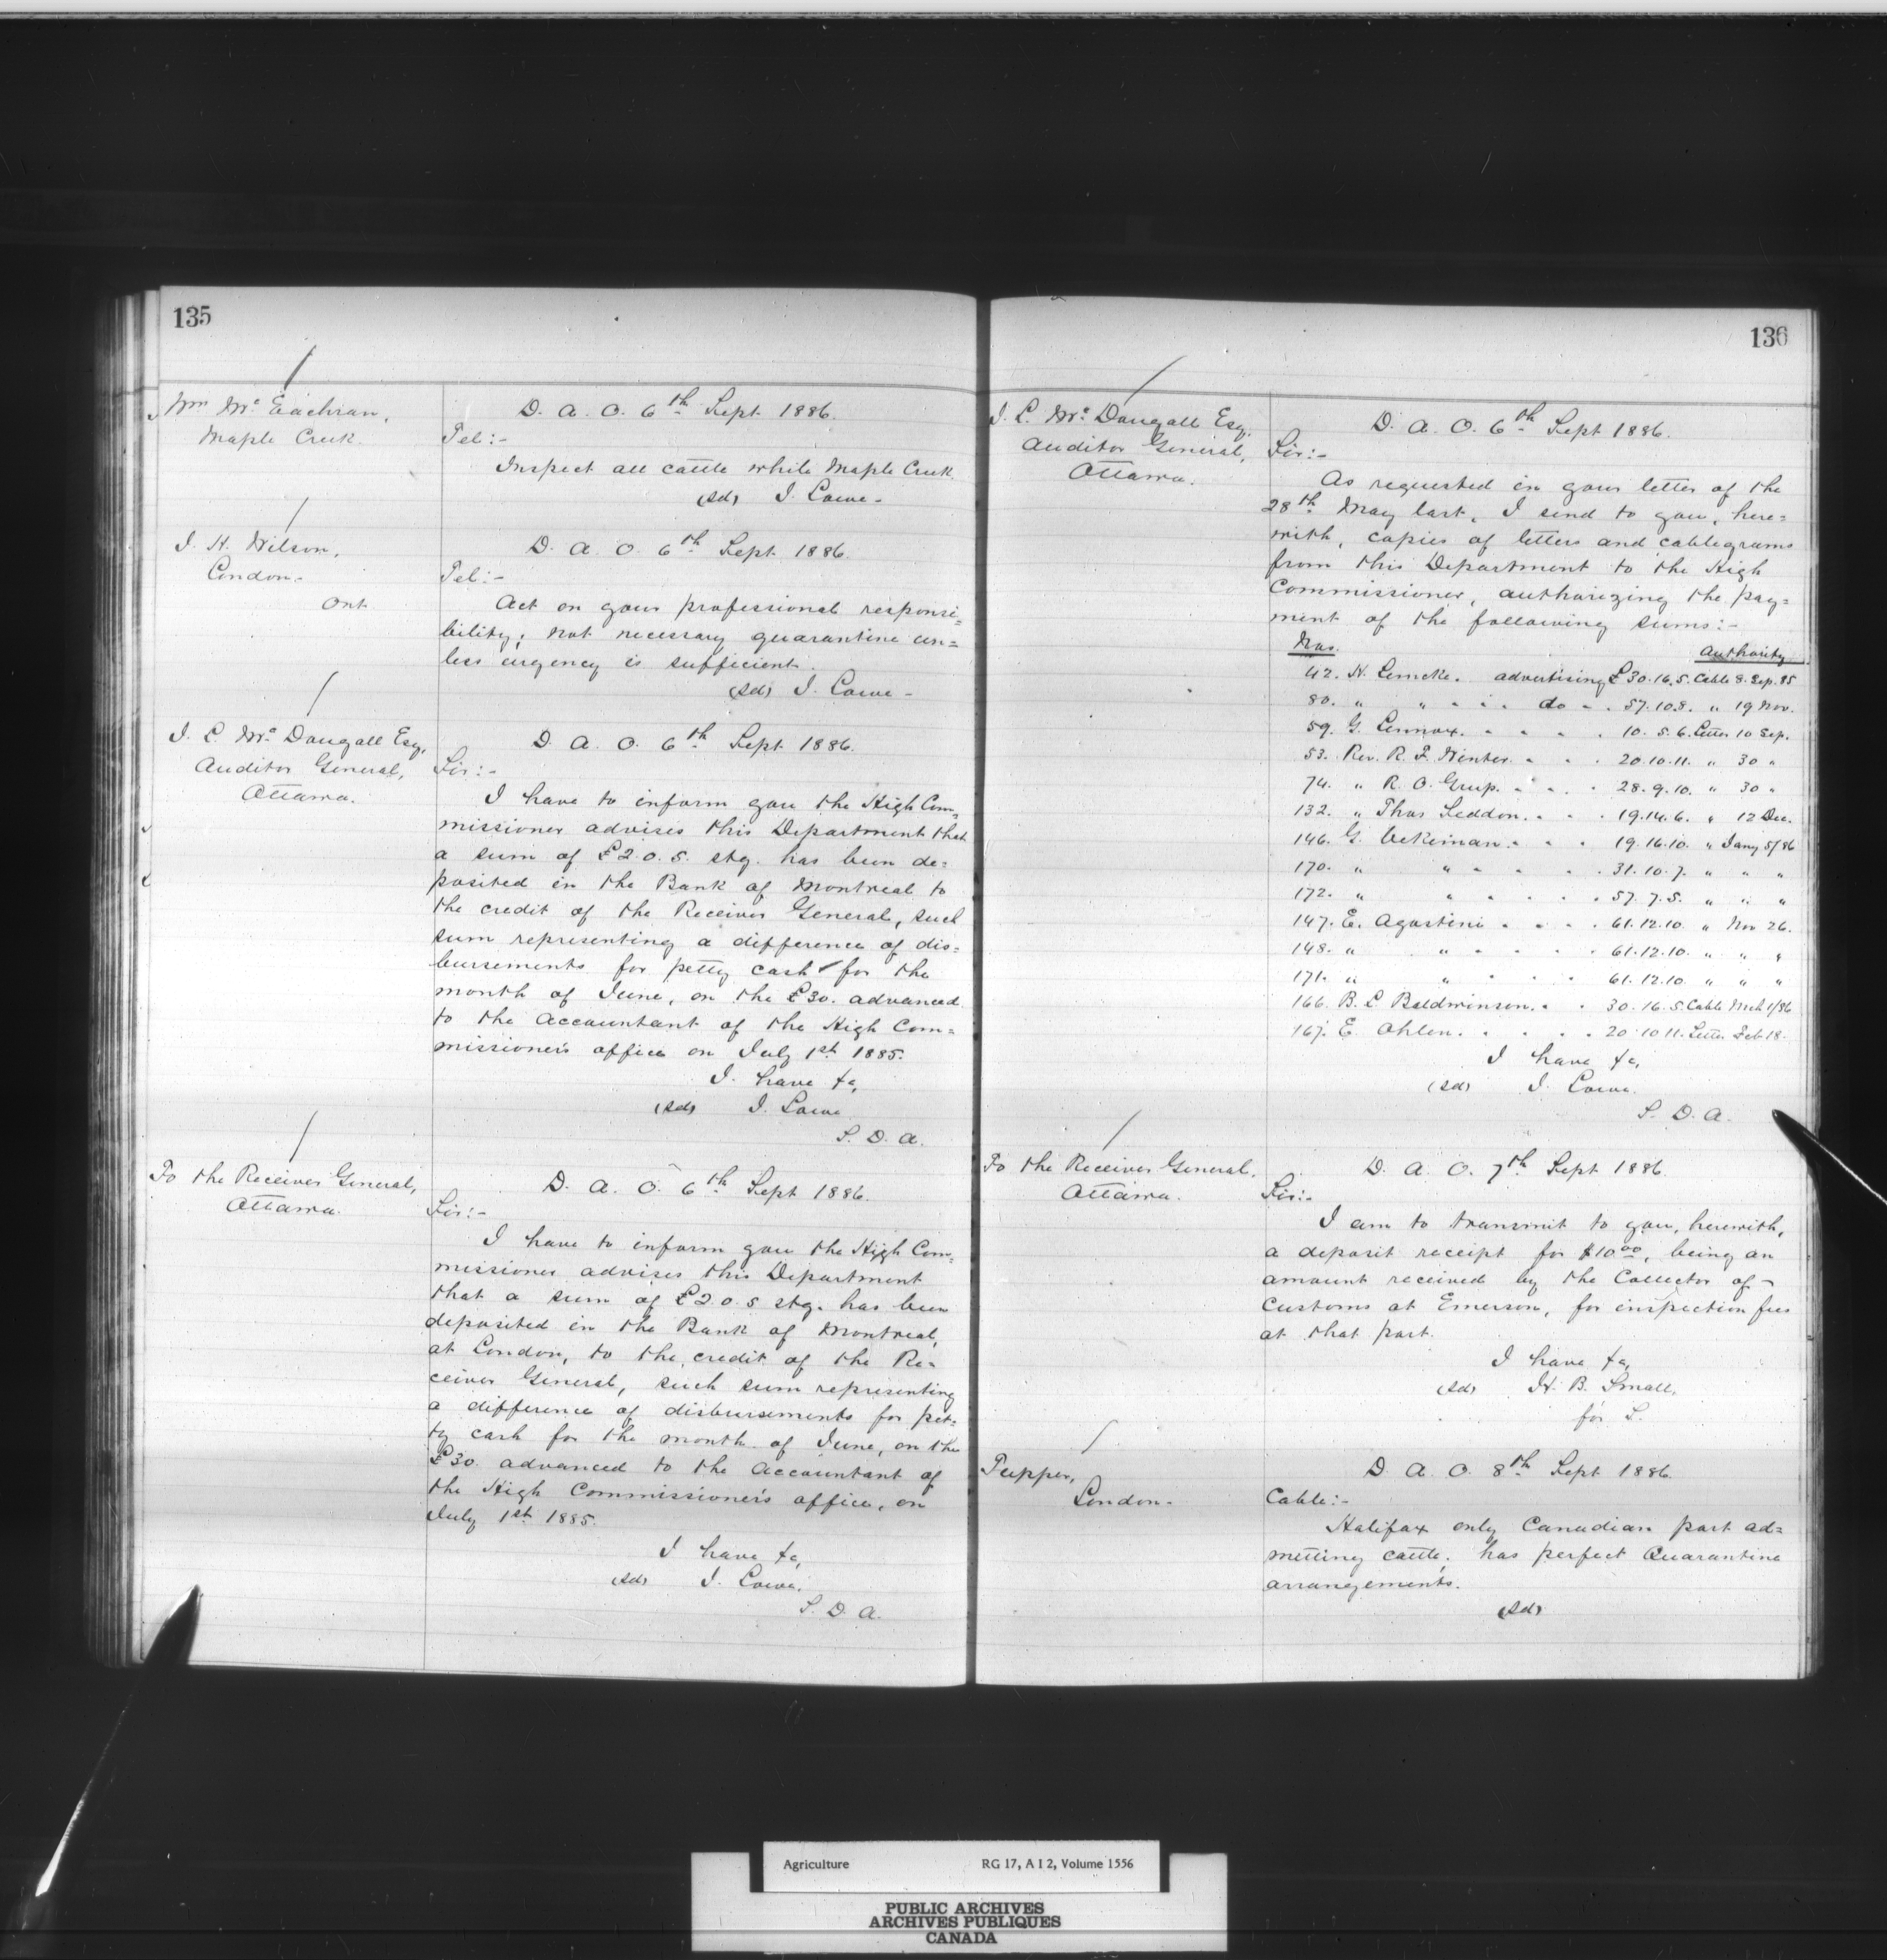 135
Wm Mc Eachran,
Maple Creek.
D. A. O. 6th Sept. 1886.
Tel:-
Inspect all cattle while Maple Creek.
(sd) J. Lowe-
J. H. Wilson,
London.
Ont.
D. A. O. 6th Sept. 1886.
Tel:-
Act on your professional responsi=
bility; not necessary quarantine un=
less urgency is sufficient.
(sd) J. Lowe-
J. L. Mc Dougall Esq,
Auditor General,
Ottawa.
D. A. O. 6th Sept. 1886.
Sir:-
I have to inform you the High Com=
missioner advises this Department that
a sum of £2.0.5. stg. has been de=
posited in the Bank of Montreal to
the credit of the Receiver General, such
sum representing a difference of dis=
bursements for petty cash for the
month of June, on the £30. advanced
to the Accountant of the High Com=
missioner's office on July 1st 1885.
I have &c,
(sd) J. Lowe
S. D. A.
To the Receiver General,
Ottawa.
D. A. O. 6th Sept 1886.
Sir:-
I have to inform you the High Com=
missioner advises this Department
that a sum of £2.0.5 stg. has been
deposited in the Bank of Montreal,
at London, to the credit of the Re=
ceiver General, such sum representing
a difference of disbursements for pet=
ty cash for the month of June, on the
£30. advanced to the Accountant of
the High Commissioner's office, on
July 1st 1885.
I have &c,
(sd) J. Lowe.
S. D. A.
136
J. L. Mc Dougall Esq.
Auditor General,
Ottawa.
D. A. O. 6th Sept 1886.
Sir:-
As requested in your letter of the
28th May last, I send to you, here=
with, copies of letters and cablegrams
from this Department to the High
Commissioner, authorizing the pay=
ment of the following sums:-
Nos. Authority
42. H. Lemcke. advertising £30.16.5. Cable 8. Sep. 85
80. " " . . . do . . 57.10.8. " 19 Nov.
59. G. Lennox. . . . . 10. 5. 6. Letter 10 Sep.
53. Rev. R. F. Winter. . . . 20.10.11. " 30 "
74. " R. O. . . . . 28.9.10. " 30 "
132. " Thos Seddon. . . . 19.14.6. " 12 Dec.
146. G. . . . 19.16.10. " Jany 5/86
170. " " . . . . 31.10.7. " " "
172. " " . . . . 57.7.5. " " "
147. E. Agostini . . . . 61.12.10 " Nov 26.
148. " " . . . . 61.12.10. " " "
171. " " . . . . 61.12.10 " " "
166. B. L. Baldwinson. . . 30.16.5. Cable Mch 1/86
167. E. Ohlen. . . . . 20 10 11. Letter Feb 18.
I have &c,
(sd) J. Lowe.
S. D. A.
To the Receiver General,
Ottawa.
D. A. O. 7th Sept 1886.
Sir:-
I am to transmit to you, herewith,
a deposit receipt for $10 00, being an
amount received by the Collector of
Customs at Emerson, for inspection fees
at that port.
I have &c,
(sd) H. B. Small,
for S.
Tupper,
London-
D. A. O. 8th Sept 1886.
Cable:-
Halifax only Canadian port ad=
mitting cattle; has perfect Quarantine
arrangements.
(sd)
Agriculture RG 17, A I 2, Volume 1556
PUBLIC ARCHIVES
ARCHIVES PUBLIQUES
CANADA